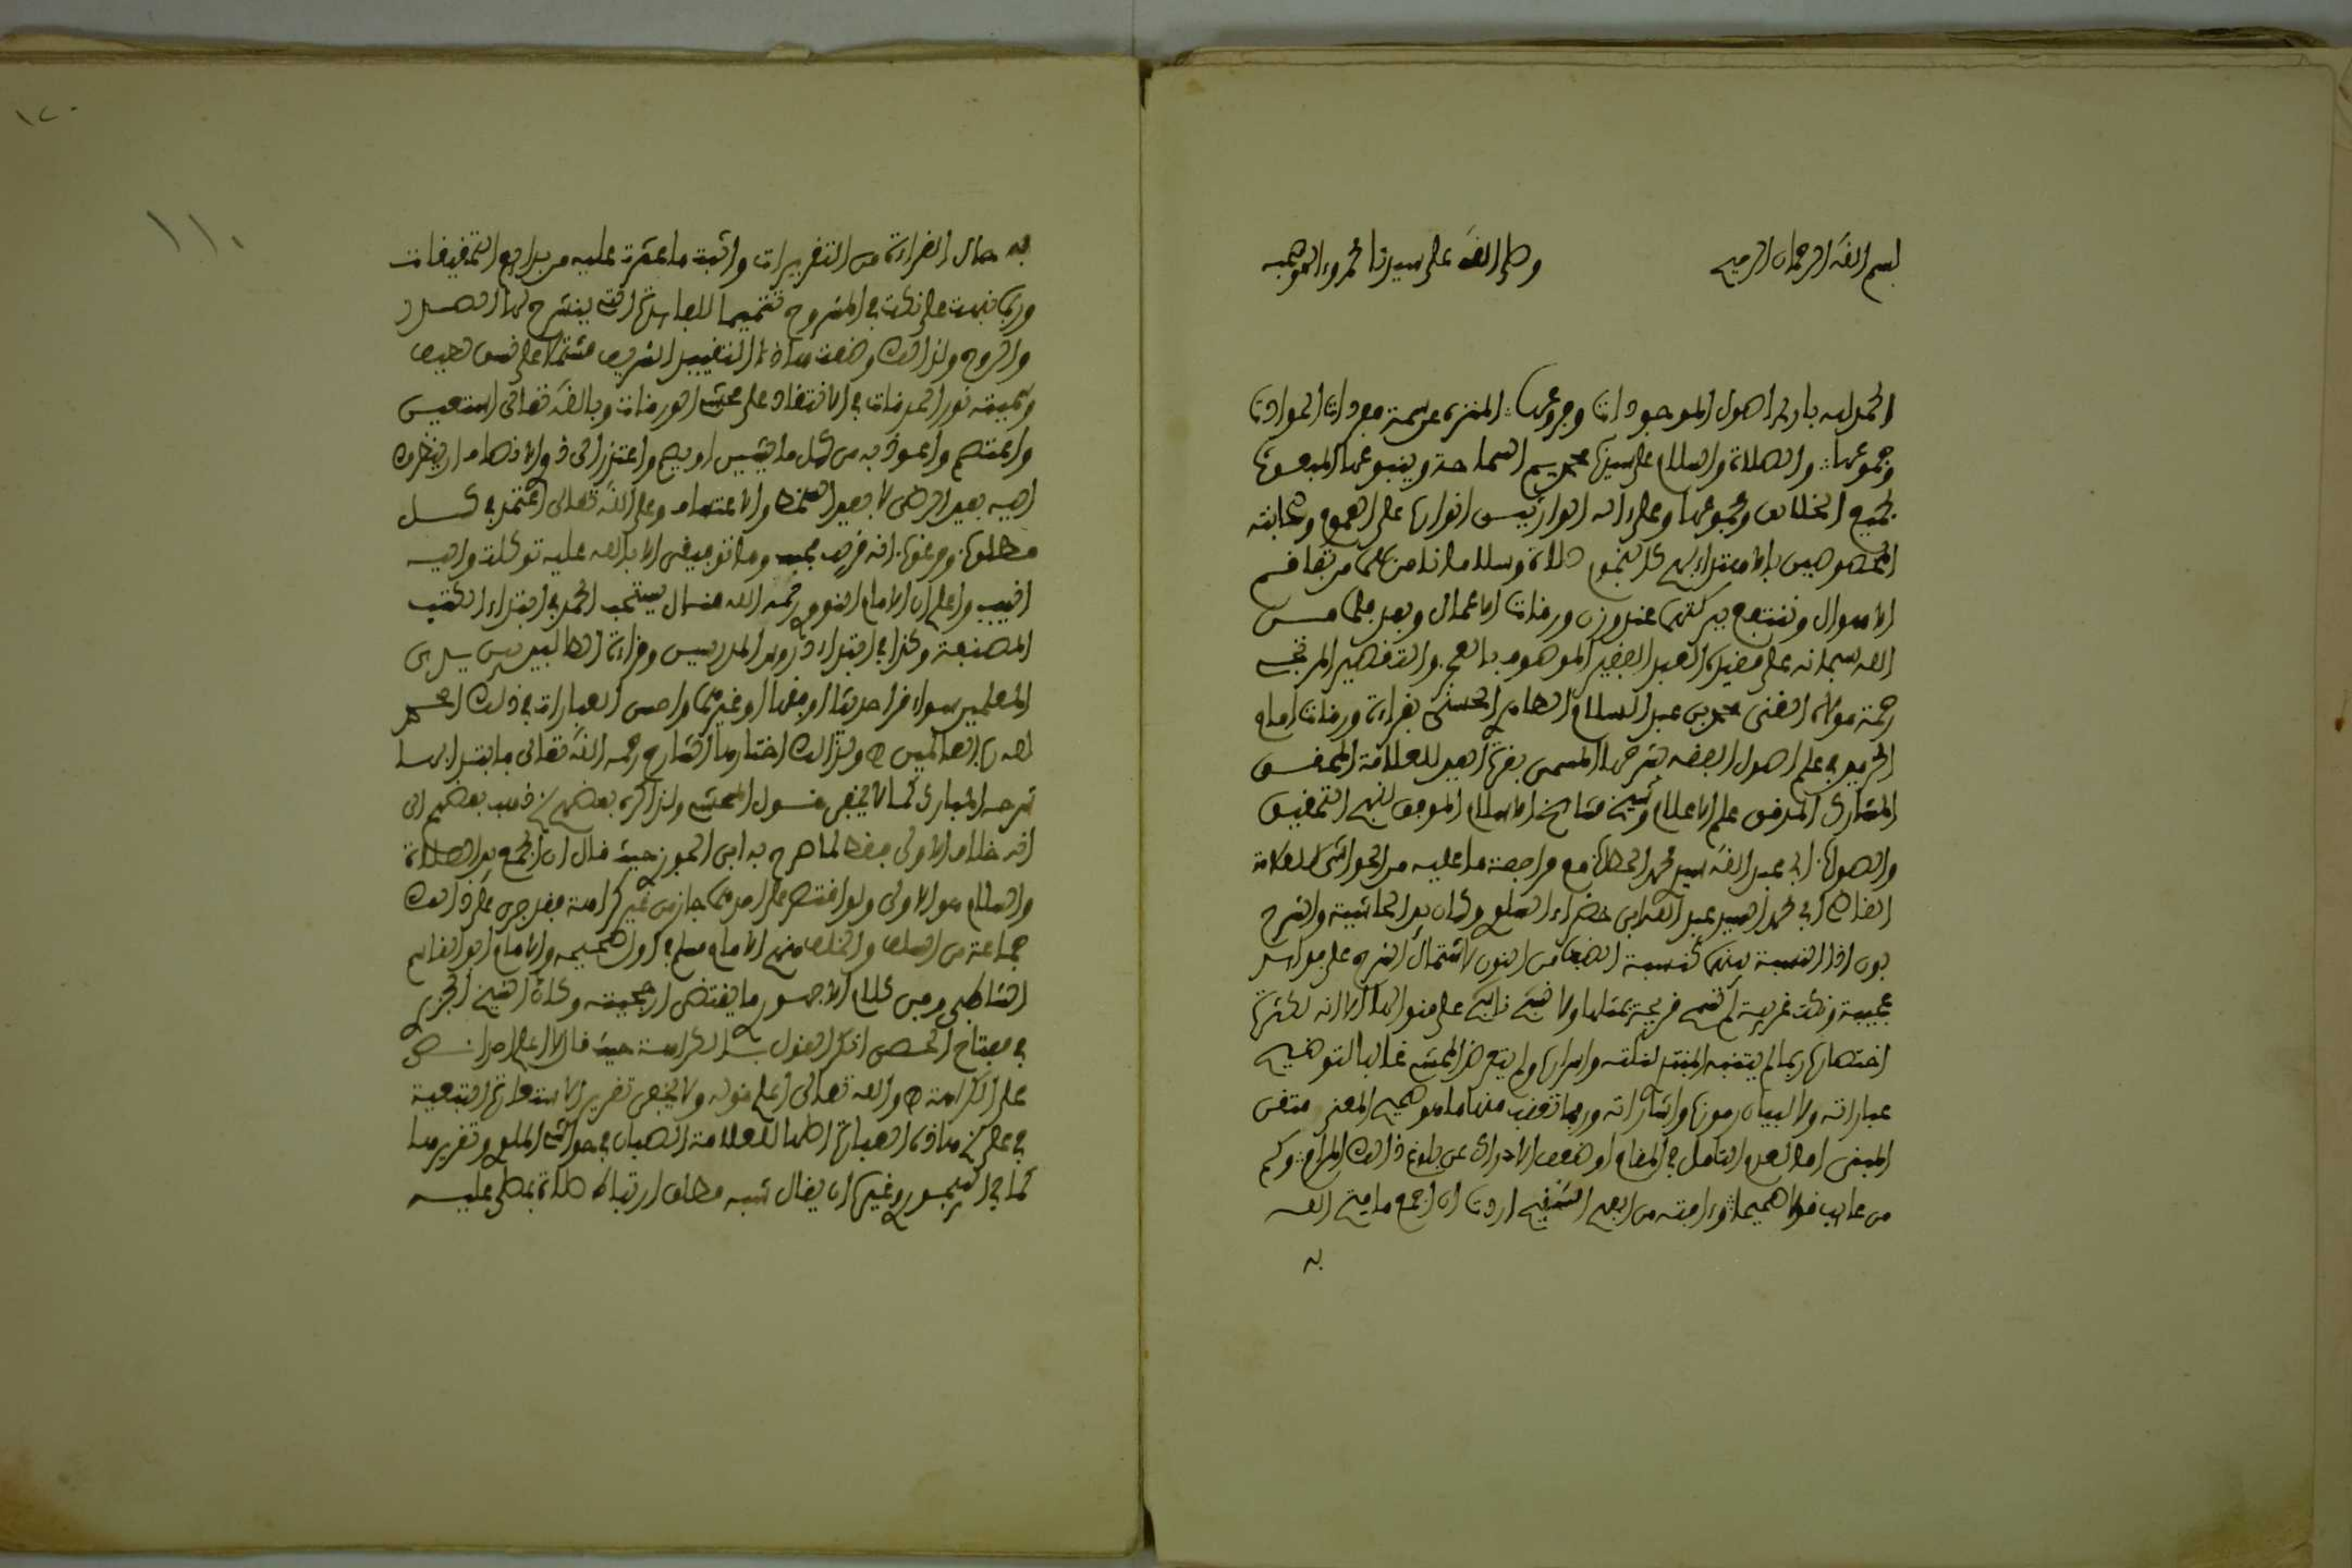 بسم الله الرحمان الرحيم وصلى الله على سيدنا محمد وءاله وصحبه
الحمد لله بارئ اصول الموجودات وفروعها المنزه عن سمة مفردات الحوادث
وجموعها والصلاة والسلام على سيدنا محمد يم السماحة وينبوعها المبعوث
لجميع الخلائق ومجموعها وعلى اله الوارثين انوارها على العموم وصحابته
المخصوصين بالاهتداء بهم كالنجوم صلاة وسلاما نامن بهما من تفاقم
الاهوال وننتفع ببركتهما عند وزن ورقات الاعمال وبعد فلما من
الله سبحانه على مقيده العبد الفقير الموسوم بالعجز والتقصير المرتجي
رحمة مولاه الغني محمد بن عبد السلام الطاهر الحسني بقراءة ورقات امام
الحرمين في علم اصول الفقه بشرحها المسمى بقرة العين للعلامة المحقق
المشارك المدقق علم الاعلام وشيخ مشايخ الاسلام الموفق لنهج التحقيق
والصواب ابي عبد الله سيدي محمد الحطاب مع مراجعة ما عليه من الحواشي للعلامة
الفاضل ابي محمد السيد عبد الله ابن خضراء السلوي وكان بين الحاشية والشرح
بون اذ النسبة بينهما كنسبة الضب من النون لاشتمال الشرح على فوائد
عجيبة ونكت غريبة لم تسمح قريحة بمثلها ولا نسج ناسج على منوالها الا انه لكثرة
اختصاره ربما لم يتنبه المبتدي لنكته واسراره ولم يتعرض المحشي غالبا لتوضيح
عباراته ولا لبيان رموزه واشاراته وربما تعقب منها ما هو صحيح المعنى متقن
المبنى اما لعدم التامل في المقام او ضعف الادراك عن بلوغ ذالك المرام وكم
من عائب قولا صحيحا وءافته من الفهم السقيم اردت ان اجمع ما من الله
به
به حال القراءة من التقريرات واثبت ما عثرت عليه من بدائع التحقيقات
وربما نبهت على نكت في المشروح تتميما للفائدة التي ينشرح لها الصدر
والروح ولذالك وضعت هاذا التقييد الشريف مشتملا على
وسميته نور الحدقات في الانتقاد على محشي الورقات وبالله تعالى استعين
واعتصم واعوذ به من كل ما يشين او يصم واعتذر الى ذوي الافهام ان ينظروا
اليه بعين الرضى لا بعين السخط والاعتساف وعلى الله تعالى اعتمد في كل
مطلوب ومرغوب انه قريب مجيب وما توفيقي الا بالله عليه توكلت واليه
انيب واعلم ان الامام النووي رحمه الله قال يستحب الحمد في ابتداء الكتب
المصنفة وكذا في ابتداء دروس المدرسين وقراءة الطالبين بين يدي
المعلمين سواء قرا حديثا او فقها او غيرهما واحسن العبارات في ذلك الحمد
لله رب العالمين ه ولذالك اختارها الشارح رحمه الله تعالى فابتدا بها
شرحه المبارك كما لا يخفى فقول المحشي ولذا كره بعضهم ذهب بعضهم الى
انه خلاف الاولى فقط لما صرح به ابن الجوزي حيث قال ان الجمع بين الصلاة
والسلام هو الاولى ولو اقتصر على احدهما جاز من غير كراهة فقد جرى على ذالك
جماعة من السلف والخلف منهم الامام مسلم في اول صحيحه والامام ابو القاسم
الشاطبي وفي كلام الاجهوري ما يقتضي ارجحيته وكذا الشيخ الجزري
في مفتاح الحصن انكر القول بالكراهة حيث قال لا اعلم احدا نص
على الكراهة ه والله تعالى اعلم قوله ولا يخفى تقرير الاستعارة التبعية
في على هاذه العبارة اصلها للعلامة الصبان في حواشي الملوي وتقريرها
كما في البيجوري وغيره ان يقال شبه مطلق ارتباط صلاة بمصلى عليه
١١٠
١٢٠